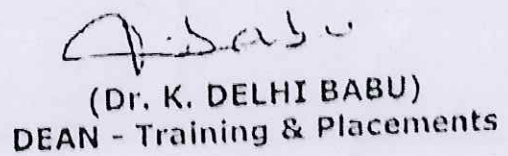 (Dr. K. DELHI BABU)
DEAN - Training & Placements